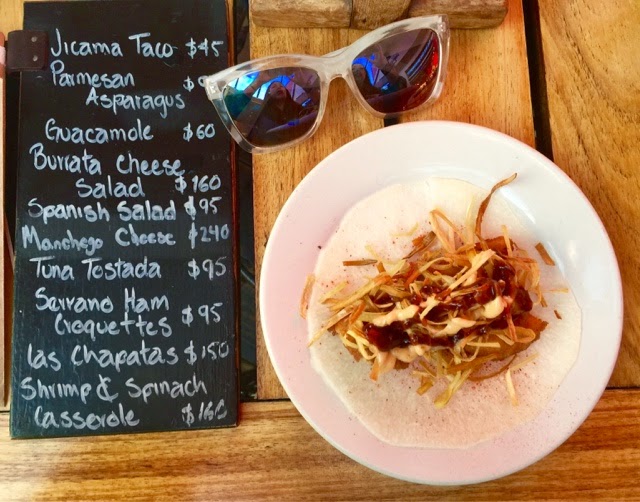 Jicama Taco $45
Parmesan
Asparagus
Guacamole $60
Burrata Cheese
Salad $160
Spanish Salad $95
Manchego Cheese $240
Tuna Tostada $95
Serrano Ham
Croquettes $95
Las Chapatas $150
Shrimp & Spinach
Casserole $160